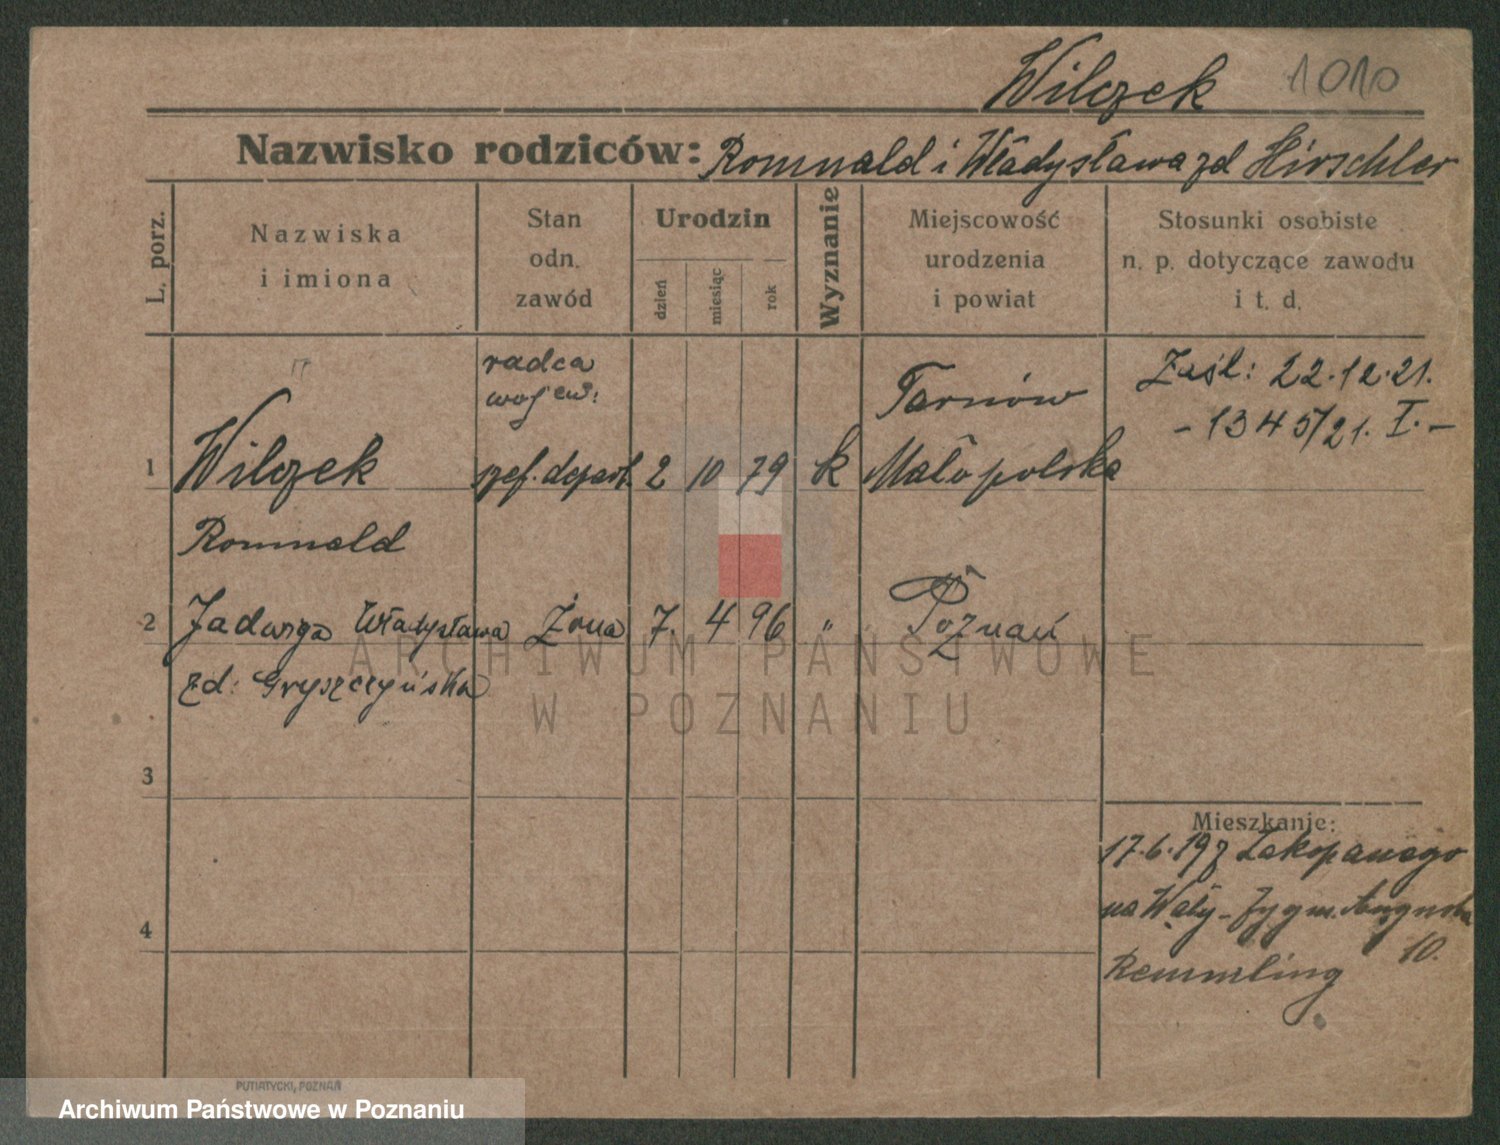 Wilczek 1010
Nazwisko rodziców: Romuald i Władysława zd Hirschler
L. porz.
Nazwiska
i imiona
Stan
odn.
zawód
Urodzin
dzień
miesiąc
rok
Wyznanie
Miejscowość
urodzenia
i powiat
Stosunki osobiste
n. p. dotyczące zawodu
i t. d.
radca
wojew:
Tarnów
Zaśl: 22.12.21.
- 1345/21. I. -
1 Wilczek szef. depart. 2 10 79 k Małopolska
Romuald
2 Jadwiga Władysława Żona 7. 4 96 " Poznań
zd: Gryszczyńska
ARCHIWUM PAŃSTWOWE
W POZNANIU
3
Mieszkanie:
17.6.19 z Zakopanego
na Wały - Zygm. Augusta
4
10.
Remmling
PUTIATYCKI, POZNAŃ
Archiwum Państwowe w Poznaniu